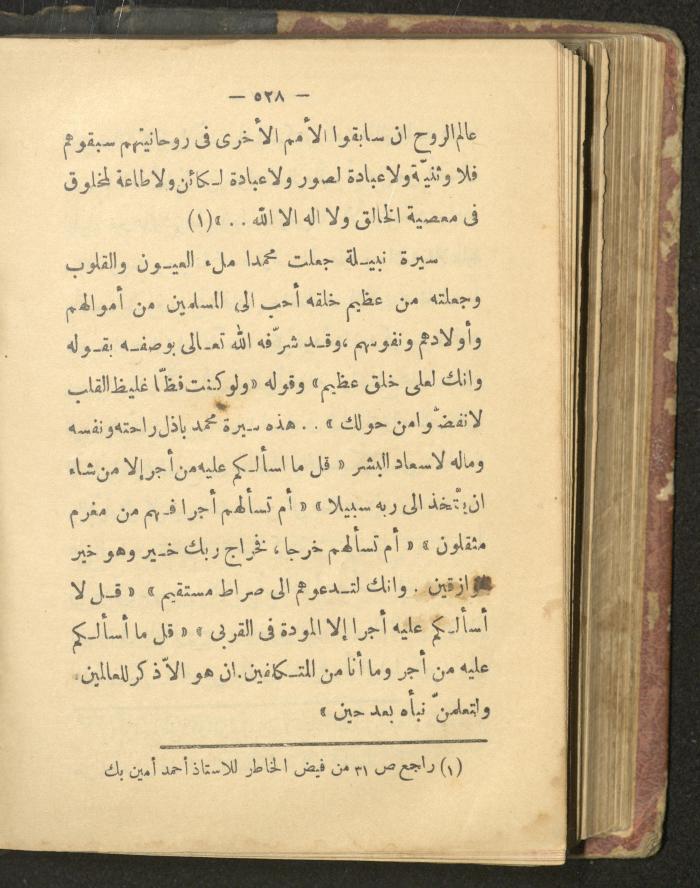 — ٥٢٨ —
عالم الروح ان سابقوا الأمم الأخرى فى روحانيتهم سبقوهم
فلا وثنيّة ولا عبادة لصور ولا عبادة لـكائن ولا طاعة لمخلوق
فى معصية الخالق ولا اله الا الله . . » (١)
سيرة نبيـلة جعلت محمدا ملء العيـون والقلوب
وجعلته من عظيم خلقه أحب الى المسلمين من أموالهم
وأولادهم ونفوسهم ، وقـد شرّفه الله تعـالى بوصفـه بقـوله
وانك لعلى خلق عظيم » وقوله « ولو كنت فظّا غليظ القلب
لانفضّوا من حولك » . . هذه سيرة محمد باذل راحته ونفسه
وماله لاسعاد البشر « قل ما اسألـكم عليه من أجر إلا من شاء
ان يتّخذ الى ربه سبيلا » « أم تسألهم أجرا فـهم من مغرم
مثقلون » « أم تسألهم خرجا ، فخراج ربك خـير وهو خير
وانك لتـدعوهم الى صراط مستقيم » « قـل لا
أسألـكم عليه أجرا إلا المودة فى القربى » « قل ما أسألـكم
عليه من أجر وما أنا من المتـكلفين . ان هو الاّ ذكر للعالمين .
ولتعلمنّ نبأه بعد حين »
(١) راجع ص ٣١ من فيض الخاطر للاستاذ أحمد أمين بك